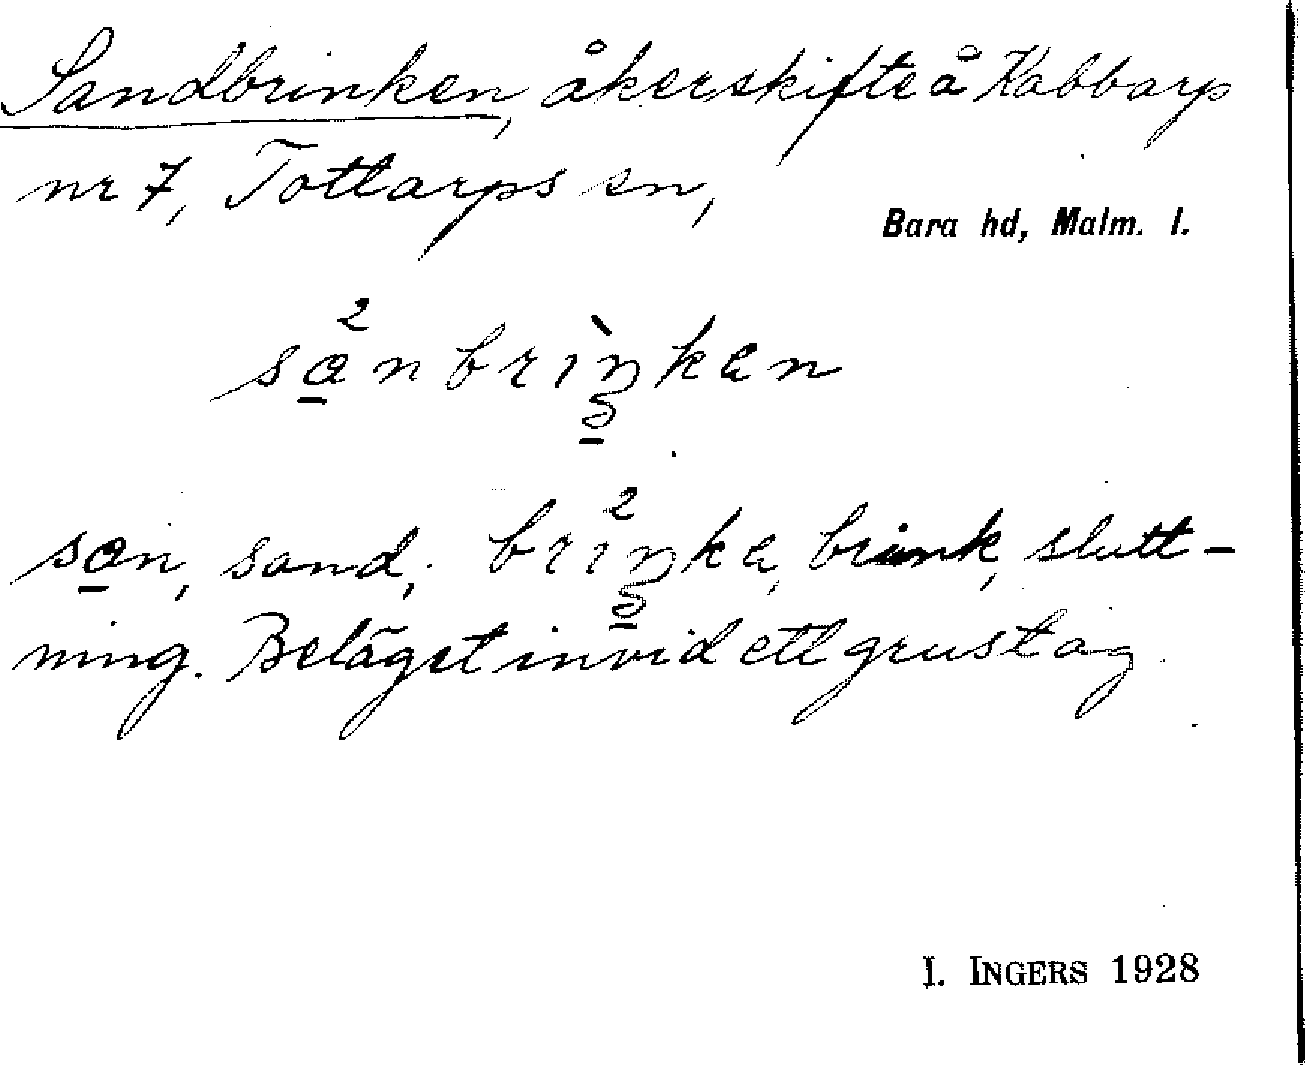 Sandbrinken, åkerskifte å Kabbarp
nr 7, Tottarps sn,
Bara hd, Malm. l.
sa²nbrìŋken
san, sand; bri²ŋke, brink, slutt-
ning. Beläget invid ett grustag.
I. INGERS 1928